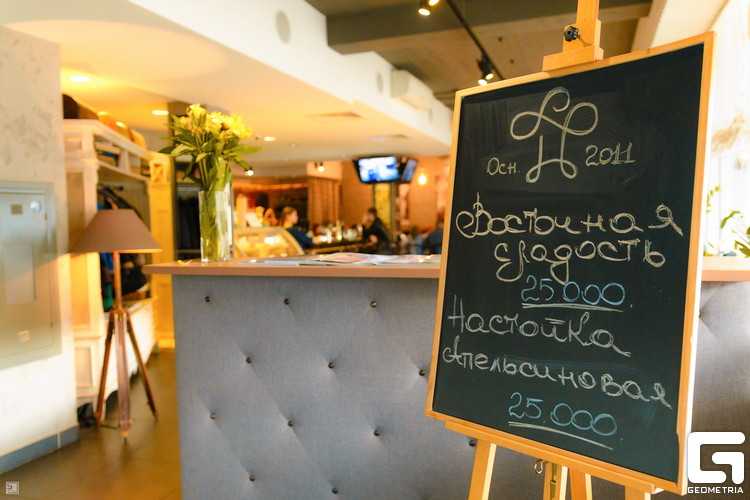 Осн. 2011
Восточная
сладость
25.000.
Настойка
Апельсиновая
25.000.
GEOMETRIA